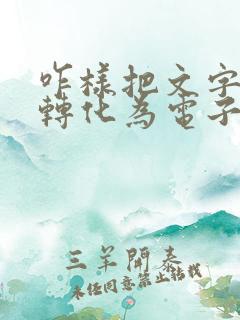 咋樣把文字
轉化為電子
三羊開泰
未经同意禁止转载